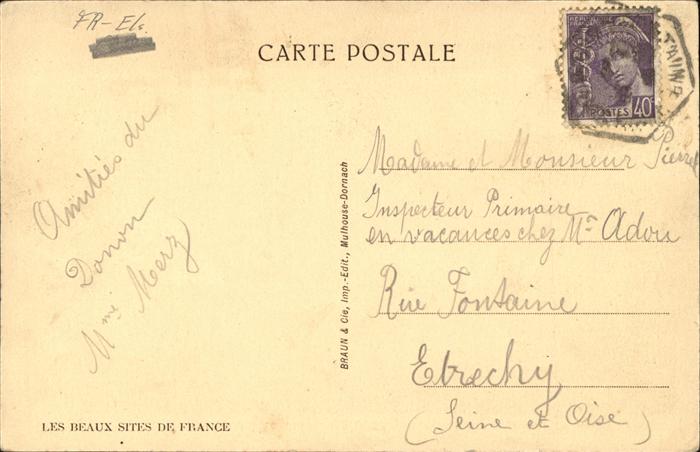 FR-Els.
CARTE POSTALE
RÉPUBLIQUE
FRANÇAISE
POSTES 40c
Amitiés du
Donon
Mme Merz
BRAUN & Cie, Imp.-Edit., Mulhouse-Dornach
Madame et Monsieur Pierrel
Inspecteur Primaire
en vacances chez Mr Adou
Rue Fontaine
Etrechy
(Seine et Oise)
LES BEAUX SITES DE FRANCE